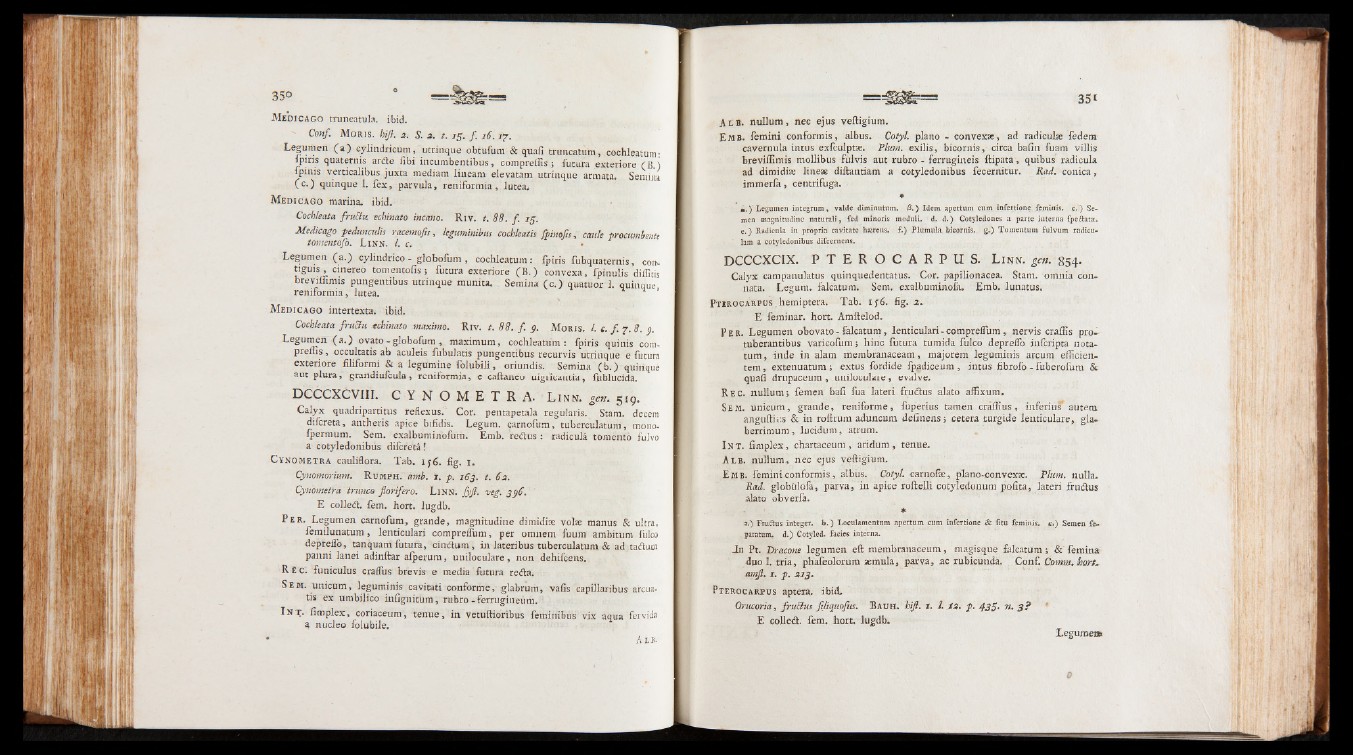 350
MEDICAGO truncatula. ibid.
Conf. MORIS. hiſt. 2. S. 2. t. 15. f. 16. 17.
Legumen (a.) cylindricum, utrinque obtuſum & quaſi truncatum, cochleatum:
ſpiris quaternis arcte ſibi incumbentibus, compreſſis; ſutura exteriore (B.)
ſpinis verticalibus juxta mediam lineam elevatam utrinque armata. Semina
(c.) quinque l. ſex, parvula, reniformia, lutea.
MEDICAGO marina. ibid.
Cochleata fructu echinato incano. RIV. t. 88. f. 15.
Medicago pedunculis racemoſis, leguminibus cochleatis ſpinoſis, caule procumbente
tomentoſo. LINN. l. c.
Legumen (a.) cylindrico-globoſum, cochleatum: ſpiris ſubquaternis, con-
tiguis, cinereo tomentoſis; ſutura exteriore (B.) convexa, ſpinulis diſſitis
breviſſimis pungentibus utrinque munita. Semina (c.) quatuor l. quinque,
reniformia, lutea.
MEDICAGO intertexta. ibid.
Cochleata fructu echinato maximo. RIV. t. 88. f. 9. MORIS. l. c. f. 7. 8. 9.
Legumen (a.) ovato-globoſum, maximum, cochleatum: ſpiris quinis com-
preſſis, occultatis ab aculeis ſubulatis pungentibus recurvis utrinque e ſutura
exteriore filiformi & a legumine ſolubili, oriundis. Semina (b.) quinque
aut plura, grandiuſcula, reniformia, e caſtaneo nigricantia, ſublucida.
DCCCXCVIII. CYNOMETRA. LINN. gen. 519.
Calyx quadripartitus reflexus. Cor. pentapetala regularis. Stam. decem
diſcreta, antheris apice bifidis. Legum. carnoſum, tuberculatum, mono-
ſpermum. Sem. exalbuminoſum. Emb. rectus: radicula tomento fulvo
a cotyledonibus diſcreta!
CYNOMETRA cauliflora. Tab. 156. fig. 1.
Cynomorium. RUMPH. amb. 1. p. 163. t. 62.
Cynometra trunco florifero. LINN. ſyſt. veg. 396.
E collect. ſem. hort. lugdb.
PER. Legumen carnoſum, grande, magnitudine dimidiæ volæ manus & ultra,
ſemilunatum, lenticulari compreſſum, per omnem ſuum ambitum ſulco
depreſſo, tanquam ſutura, cinctum, in lateribus tuberculatum & ad tactum
panni lanei adinſtar aſperum, uniloculare, non dehiſcens.
REC. funiculus craſſus brevis e media ſutura recta.
SEM. unicum, leguminis cavitati conforme, glabrum, vaſis capillaribus arcua-
tis ex umbilico inſignitum, rubro-ferrugineum.
INT. ſimplex, coriaceum, tenue, in vetuſtioribus ſeminibus vix aqua fervida
a nucleo ſolubile.
ALB.
351
ALB. nullum, nec ejus veſtigium.
EMB. ſemini conformis, albus. Cotyl. plano-convexæ, ad radiculæ ſedem
cavernula intus exſculptæ. Plum. exilis, bicornis, circa baſin ſuam villis
breviſſimis mollibus fulvis aut rubro-ferrugineis ſtipata, quibus radicula
ad dimidiæ lineæ diſtantiam a cotyledonibus ſecernitur. Rad. conica,
immerſa, centrifuga.
*
a.) Legumen integrum, valde diminutum. B.) Idem apertum cum inſertione ſeminis. c.) Se-
men magnitudine naturali, ſed minoris moduli. d. d.) Cotyledones a parte interna ſpectatæ.
e.) Radicula in propria cavitate hærens. f.) Plumula bicornis. g.) Tomentum fulvum radicu-
lam a cotyledonibus diſcernens.
DCCCXCIX. PTEROCARPUS. LINN. gen. 854.
Calyx campanulatus quinquedentatus. Cor. papilionacea. Stam. omnia con-
nata. Legum. falcatum. Sem. exalbuminoſu. Emb. lunatus.
PTEROCARPUS hemiptera. Tab. 156. fig. 2.
E ſeminar. hort. Amſtelod.
PER. Legumen obovato-falcatum, lenticulari-compreſſum, nervis craſſis pro-
tuberantibus varicoſum; hinc ſutura tumida ſulco depreſſo inſcripta nota-
tum, inde in alam membranaceam, majorem leguminis arcum efficien-
tem, extenuatum; extus ſordide ſpadiceum, intus fibroſo-ſuberoſum &
quaſi drupaceum, uniloculare, evalve.
REC. nullum; ſemen baſi ſua lateri fructus alato affixum.
SEM. unicum, grande, reniforme, ſuperius tamen craſſius, inferius autem
anguſtius & in roſtrum aduncum deſinens; cetera turgide lenticulare, gla-
berrimum, lucidum, atrum.
INT. ſimplex, chartaceum, aridum, tenue.
ALB. nullum, nec ejus veſtigium.
EMB. ſemini conformis, albus. Cotyl. carnoſæ, plano-convexæ. Plum. nulla.
Rad. globuloſa, parva, in apice roſtelli cotyledonum poſita, lateri fructus
alato obverſa.
*
a.) Fructus integer. b.) Loculamentum apertum cum inſertione & ſitu ſeminis. c.) Semen ſe-
paratum. d.) Cotyled. facies interna.
In Pt. Dracone legumen eſt membranaceum, magisque falcatum; & ſemina
duo l. tria, phaſeolorum æmula, parva, ac rubicunda. Conf. Comm. hort.
amſt. 1. p. 213.
PTEROCARPUS aptera. ibid.
Orucoria, fructus ſiliquoſus. BAUH. hiſt. 1. l. 12. p. 435. n. 3?
E collect. ſem. hort. lugdb.
Legumen